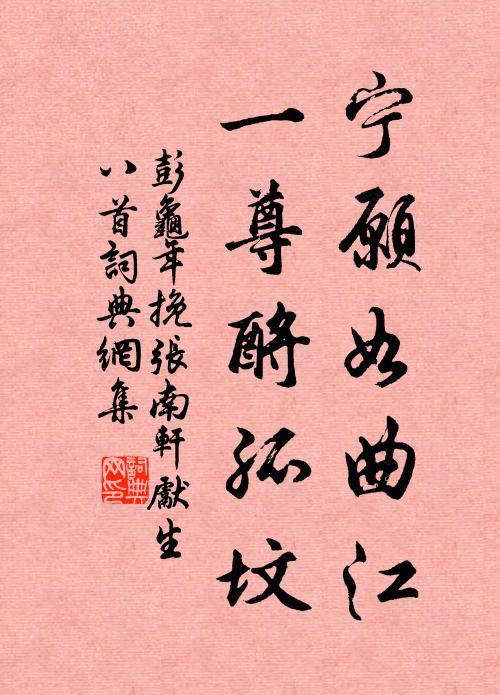 宁願如曲江
一尊酹孤坟
彭龜年挽張南軒獻生
八首詞典網集
詞典
网印